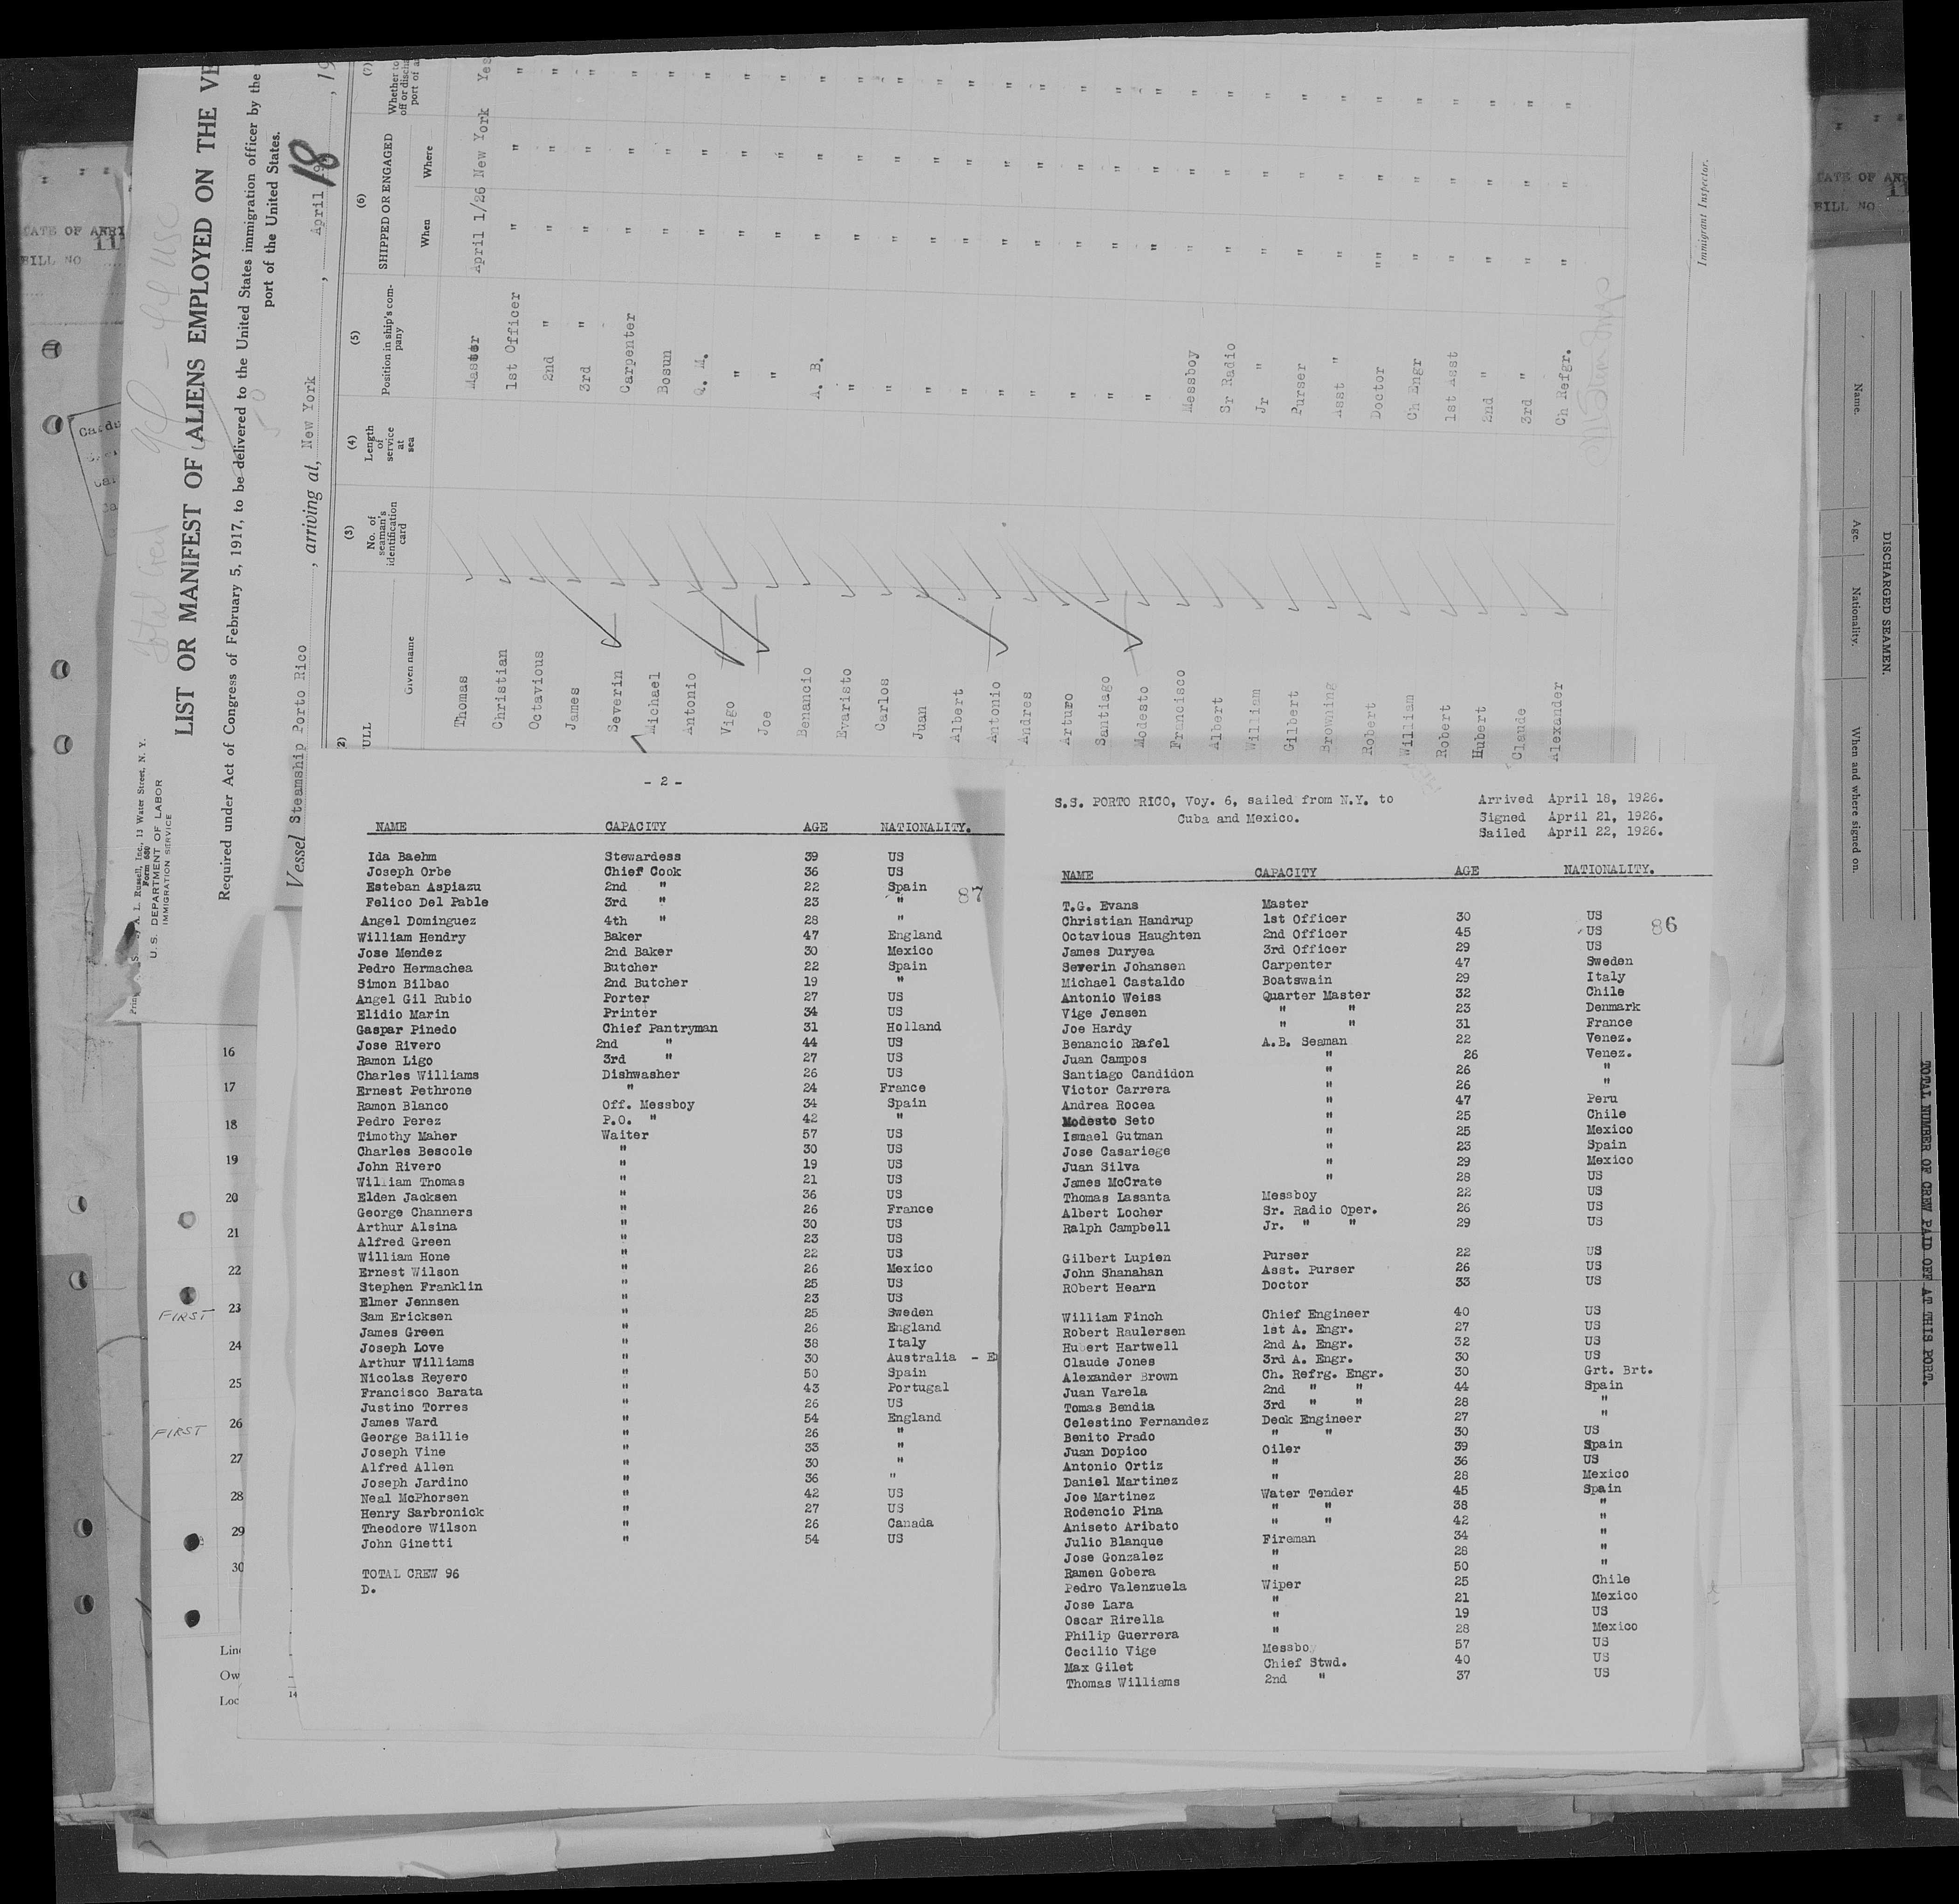 Form 680
U.S. DEPARTMENT OF LABOR
IMMIGRATION SERVICE
LIST OR MANIFEST OF ALIENS EMPLOYED ON THE VE
Required under Act of Congress of February 5, 1917, to be delivered to the United States immigration officer by the
port of the United States.
Vessel Steamship Porto Rico, arriving at, New York, April 18, 19
(2) (3) (4) (5) (6) (7)
ULL No. of seaman's identification card Length of service at sea Position in ship's company SHIPPED OR ENGAGED
Given name When Where
Thomas Master April 1/26 New York Yes
Christian 1st Officer " " "
Octavious 2nd " " " "
James 3rd " " " "
Severin Carpenter " " "
Michael Bosun " " "
Antonio Q. M. " " "
Vigo " " " "
Joe " " " "
Benancio A. B. " " "
Evaristo " " " "
Carlos " " " "
Juan " " " "
Albert " " " "
Antonio " " " "
Andres " " " "
Arturo " " " "
Santiago " " " "
Modesto " " " "
Francisco Messboy " " "
Albert Sr Radio " " "
William Jr " " " "
Gilbert Purser " " "
Browning Asst " " " "
Robert Doctor "" " "
William Ch Engr " " "
Robert 1st Asst " " "
Hubert 2nd " " " "
Claude 3rd " " " "
Alexander Ch Refgr. " " "
Immigrant Inspector.
- 2 -
NAME CAPACITY AGE NATIONALITY.
Ida Baehm Stewardess 39 US
Joseph Orbe Chief Cook 36 US
Esteban Aspiazu 2nd " 22 Spain
87
Felico Del Pable 3rd " 23 "
Angel Dominguez 4th " 28 "
William Hendry Baker 47 England
Jose Mendez 2nd Baker 30 Mexico
Pedro Hermachea Butcher 22 Spain
Simon Bilbao 2nd Butcher 19 "
Angel Gil Rubio Porter 27 US
Elidio Marin Printer 34 US
Gaspar Pinedo Chief Pantryman 31 Holland
Jose Rivero 2nd " 44 US
Ramon Ligo 3rd " 27 US
Charles Williams Dishwasher 26 US
Ernest Pethrone " 24 France
Ramon Blanco Off. Messboy 34 Spain
Pedro Perez P.O. " 42 "
Timothy Maher Waiter 57 US
Charles Bescole " 30 US
John Rivero " 19 US
William Thomas " 21 US
Elden Jacksen " 36 US
George Channers " 26 France
Arthur Alsina " 30 US
Alfred Green " 23 US
William Hone " 22 US
Ernest Wilson " 26 Mexico
Stephen Franklin " 25 US
Elmer Jennsen " 23 US
Sam Ericksen " 25 Sweden
James Green " 26 England
Joseph Love " 38 Italy
Arthur Williams " 30 Australia - E
Nicolas Reyero " 50 Spain
Francisco Barata " 43 Portugal
Justino Torres " 26 US
James Ward " 54 England
George Baillie " 26 "
Joseph Vine " 33 "
Alfred Allen " 30 "
Joseph Jardino " 36 "
Neal McPhorsen " 42 US
Henry Sarbronick " 27 US
Theodore Wilson " 26 Canada
John Ginetti " 54 US
TOTAL CREW 96
D.
S.S. PORTO RICO, Voy. 6, sailed from N.Y. to Cuba and Mexico.
Arrived April 18, 1926.
Signed April 21, 1926.
Sailed April 22, 1926.
NAME CAPACITY AGE NATIONALITY.
T.G. Evans Master
Christian Handrup 1st Officer 30 US
86
Octavious Haughten 2nd Officer 45 US
James Duryea 3rd Officer 29 US
Severin Johansen Carpenter 47 Sweden
Michael Castaldo Boatswain 29 Italy
Antonio Weiss Quarter Master 32 Chile
Vige Jensen " " 23 Denmark
Joe Hardy " " 31 France
Benancio Rafel A.B. Seaman 22 Venez.
Juan Campos " 26 Venez.
Santiago Candidon " 26 "
Victor Carrera " 26 "
Andrea Rocea " 47 Peru
Modesto Seto " 25 Chile
Ismael Gutman " 25 Mexico
Jose Casariege " 23 Spain
Juan Silva " 29 Mexico
James McCrate " 28 US
Thomas Lasanta Messboy 22 US
Albert Locher Sr. Radio Oper. 26 US
Ralph Campbell Jr. " " 29 US
Gilbert Lupien Purser 22 US
John Shanahan Asst. Purser 26 US
RObert Hearn Doctor 33 US
William Finch Chief Engineer 40 US
Robert Raulersen 1st A. Engr. 27 US
Hubert Hartwell 2nd A. Engr. 32 US
Claude Jones 3rd A. Engr. 30 US
Alexander Brown Ch. Refrg. Engr. 30 Grt. Brt.
Juan Varela 2nd " " 44 Spain
Tomas Bendia 3rd " " 28 "
Celestino Fernandez Deck Engineer 27 "
Benito Prado " " 30 US
Juan Dopico Oiler 39 Spain
Antonio Ortiz " 36 US
Daniel Martinez " 28 Mexico
Joe Martinez Water Tender 45 Spain
Rodencio Pina " " 38 "
Aniseto Aribato " " 42 "
Julio Blanque Fireman 34 "
Jose Gonzalez " 28 "
Ramen Gobera " 50 "
Pedro Valenzuela Wiper 25 Chile
Jose Lara " 21 Mexico
Oscar Rirella " 19 US
Philip Guerrera " 28 Mexico
Cecilio Vige Messbo 57 US
Max Gilet Chief Stwd. 40 US
Thomas Williams 2nd " 37 US
16
17
18
19
20
21
22
FIRST 23
24
25
FIRST 26
27
28
29
30
Lin
Ow
Loc
14
BILL NO
DISCHARGED SEAMEN.
Name. Age. Nationality. When and where signed on.
TOTAL NUMBER OF CREW PAID OFF AT THIS PORT.